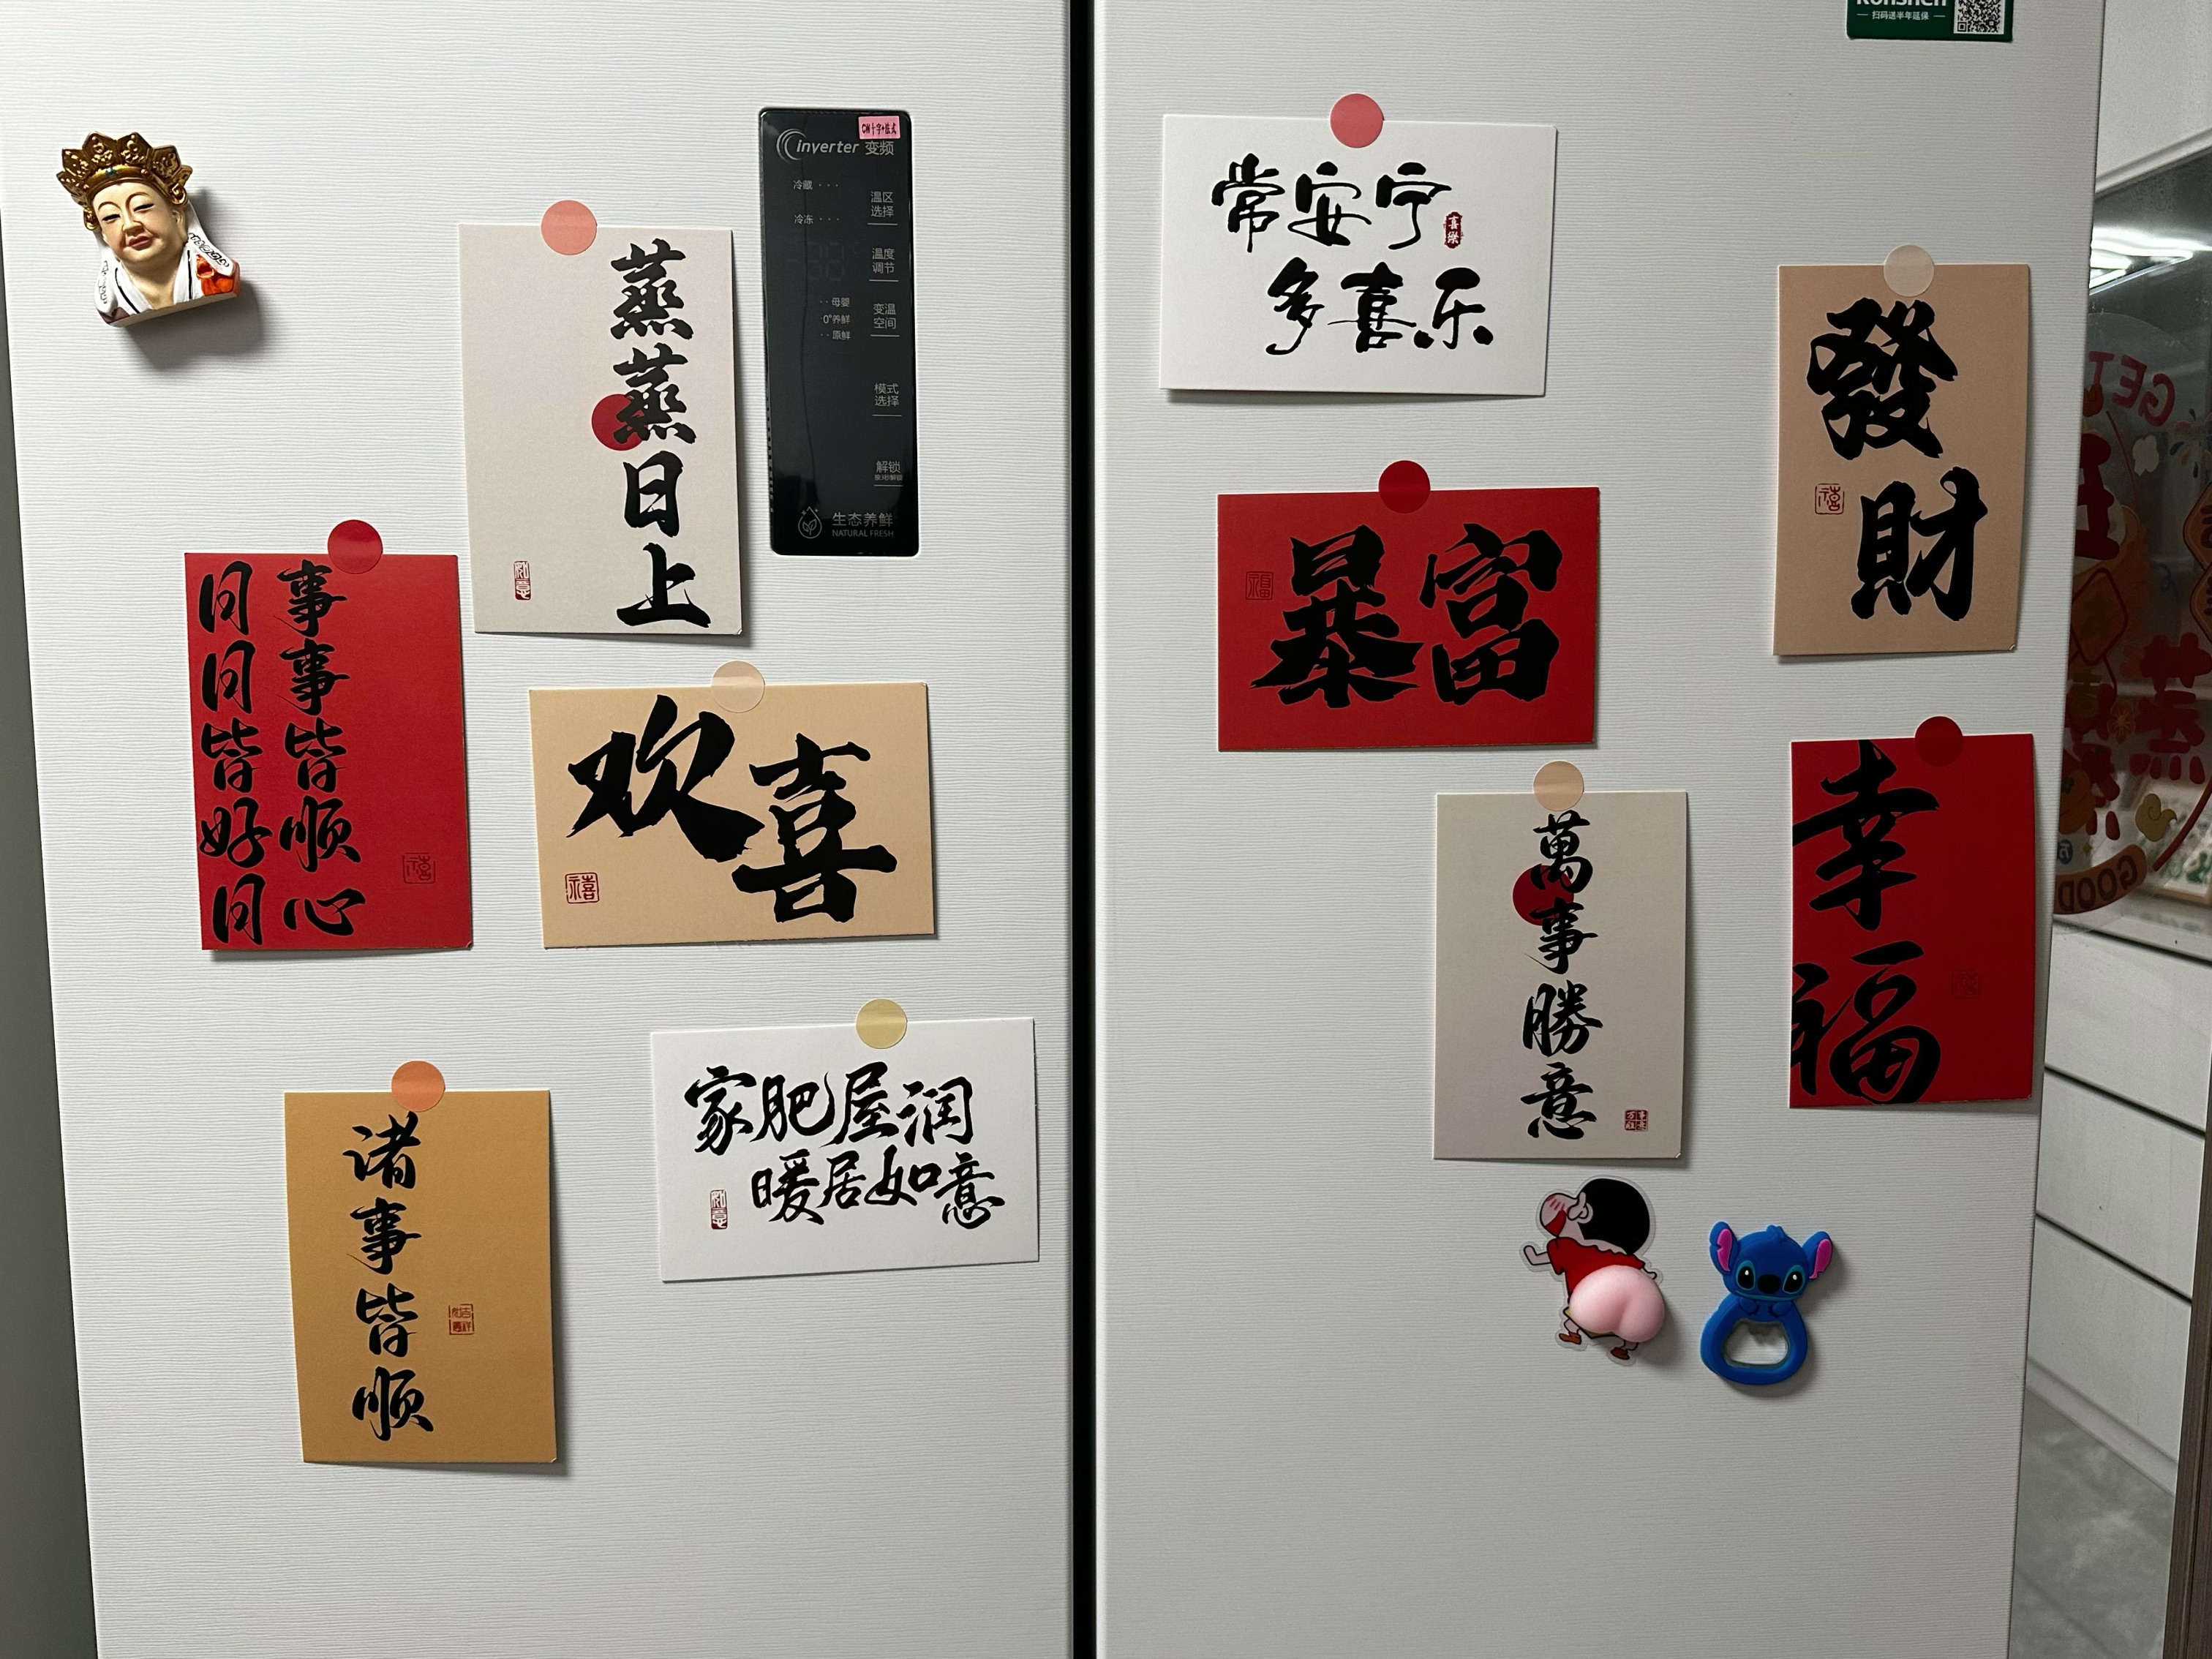 Ronshen
扫码送半年延保
inverter 变频
冷藏
冷冻
温区
选择
温度
调节
母婴
0°养鲜
原鲜
变温
空间
模式
选择
解锁
生态养鲜
NATURAL FRESH
蒸蒸日上
如意
事事皆顺心
日日皆好日
禧
欢喜
禧
诸事皆顺
家肥屋润
暖居如意
如意
常安宁
多喜乐
喜樂
發財
禧
暴富
福
萬事勝意
幸福
GET
GOOD